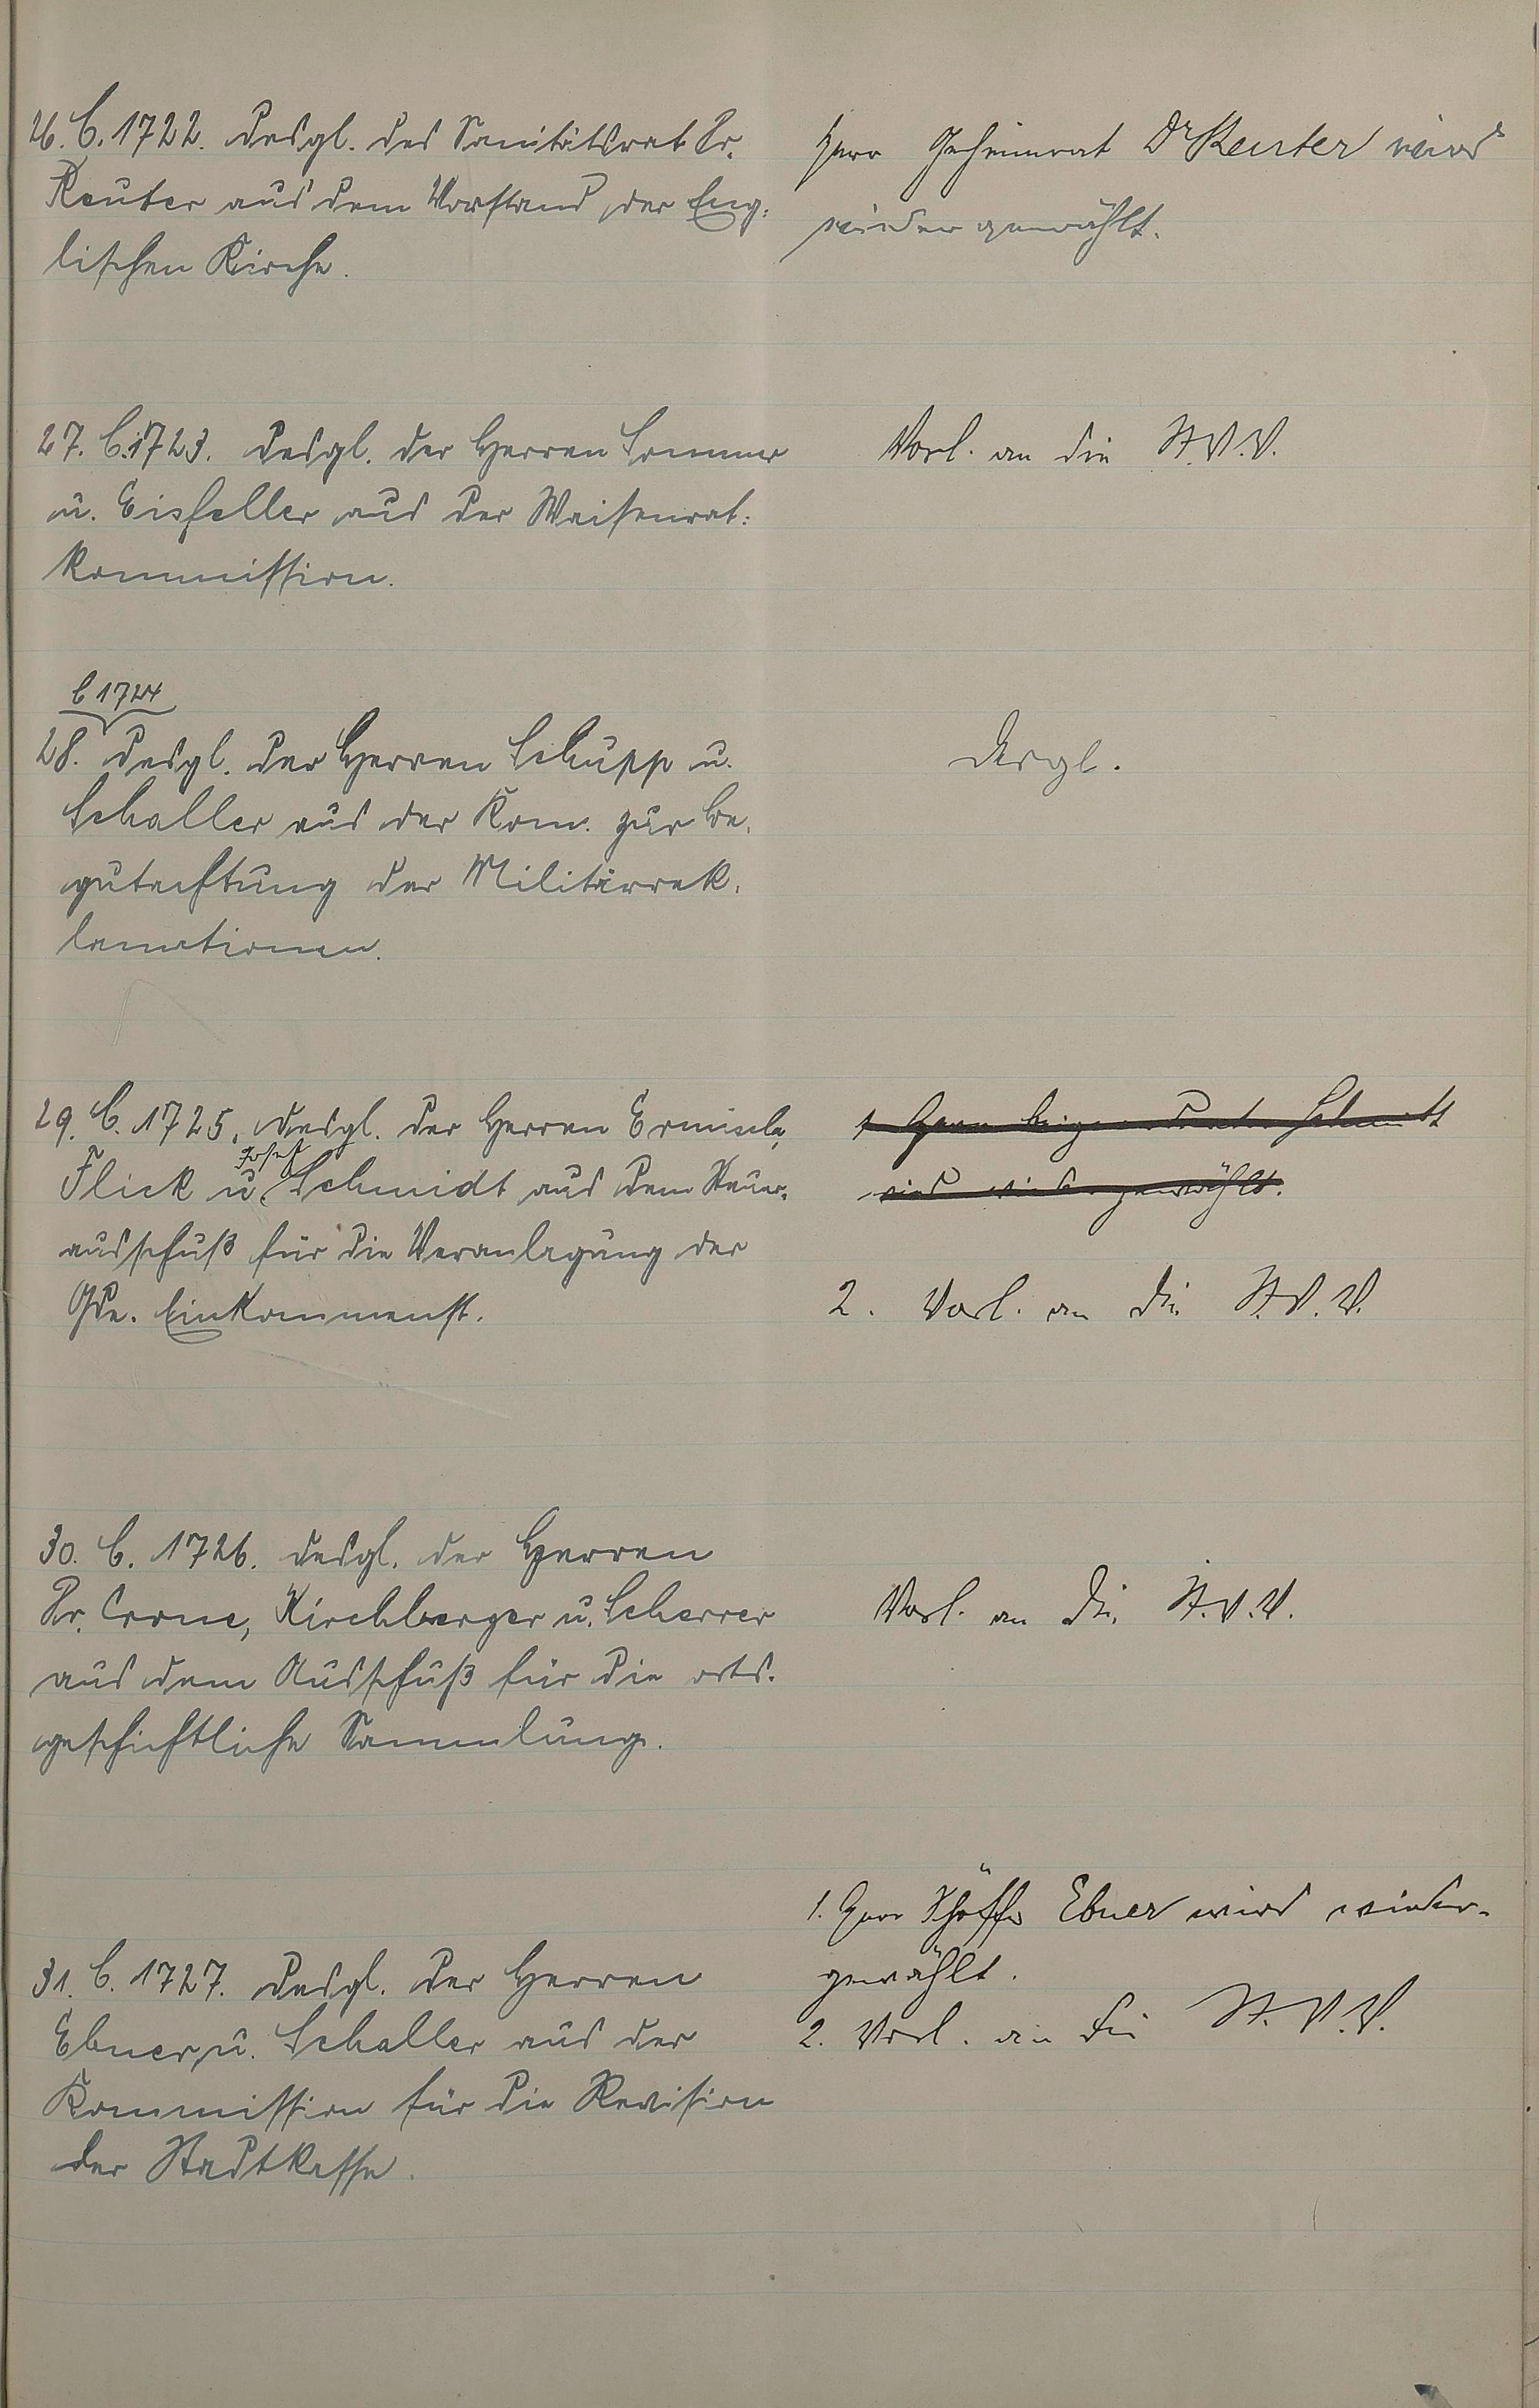 26. C. 1722. desgl. des Sanitätsrat Dr.
Reuter aus dem Vorstand der Eng-
lischen Kirche.
Herr Geheimrat Dr Reuter wird
wiedergewählt.
27. C. 1723. desgl. der Herren Sommer
u. Eisfeller aus der Waisenrat-
kommission.
Vorl. an die St.V.V.
C 1724
28. desgl. der Herren Schupp u.
Schaller aus der Kom. zur Be-
gutachtung der Militärrek-
lamationen.
desgl.
29. C. 1725. desgl. der Herren Ermisch,
Josef
Flick u. Schmidt aus dem Steuer-
ausschuß für die Veranlagung der
Gde. Einkommenst.
1 Herr Beigeordneter Schmitt
wird wiedergewählt.
2. Vorl. an die St.V.V.
30. C. 1726. desgl. der Herren
Dr. Crone, Kirchberger u. Scherrer
aus dem Ausschuß für die orts-
geschichtliche Sammlung.
Vorl. an die St.V.V.
31. C. 1727. desgl. der Herren
Ebner u. Schaller aus der
Kommission für die Revision
der Stadtkasse.
1. Herr Schöffe Ebner wird wieder-
gewählt.
2. Vorl. an die St.V.V.